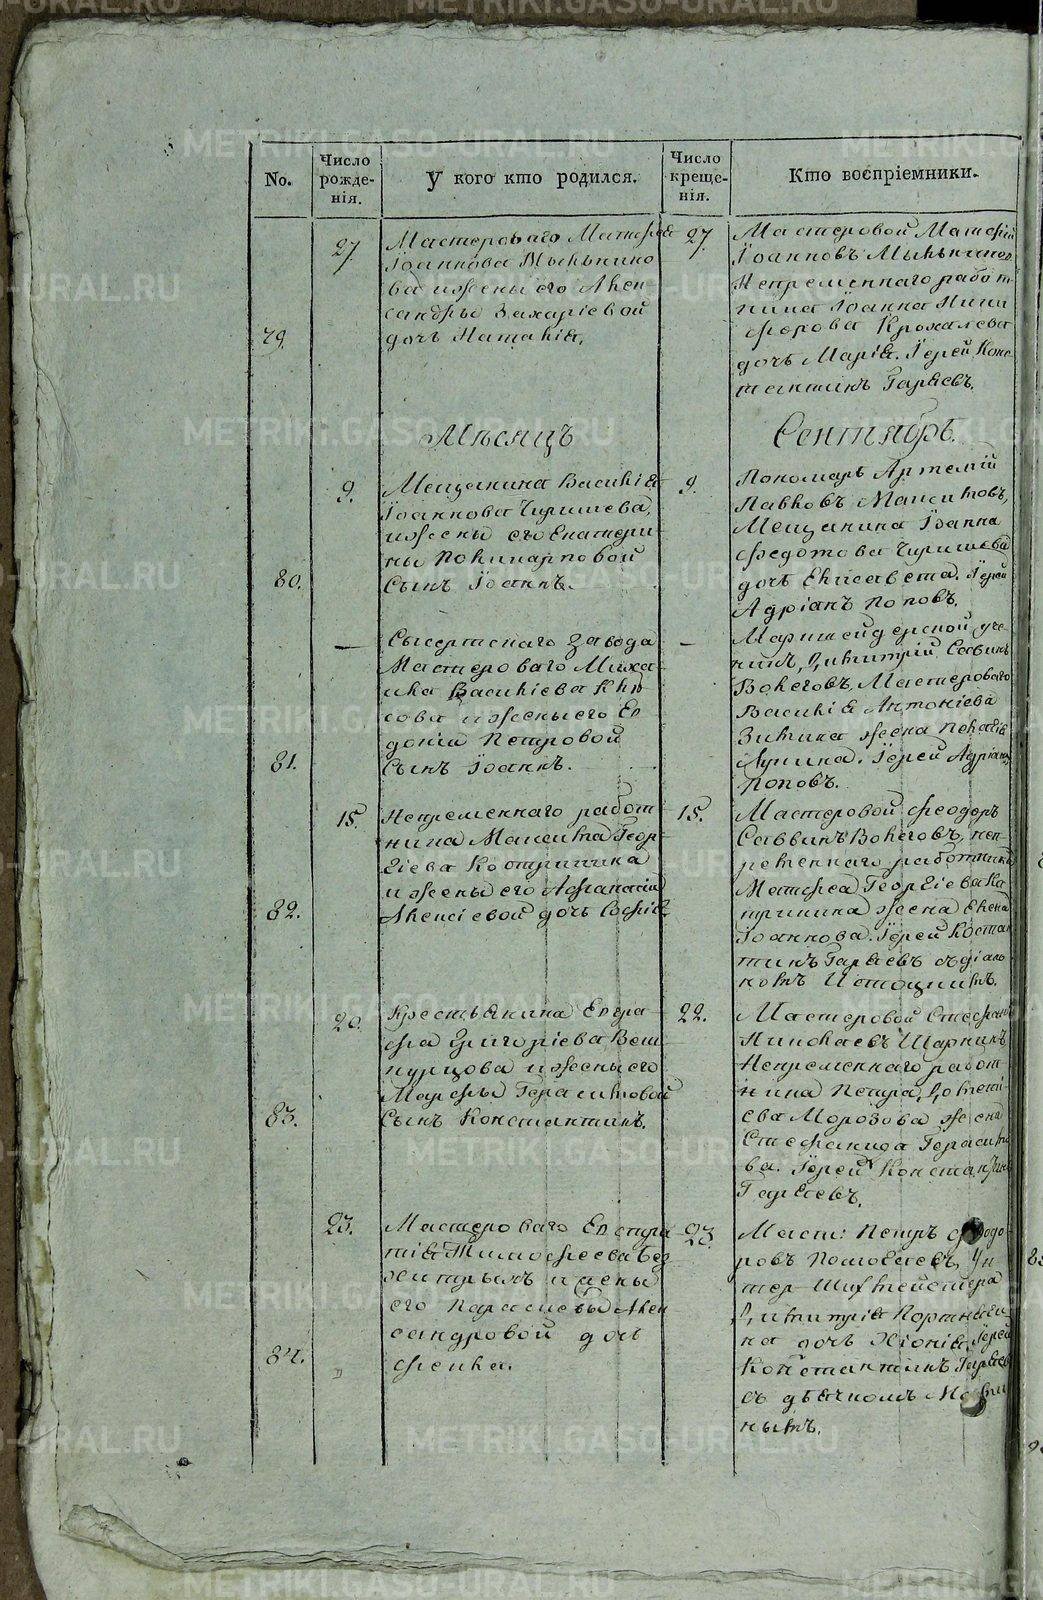 No.
Число рожде- нія.
У кого кто родился.
Число креще- нія.
Кто воспріемники.
79.
27.
Мастероваго Матфея
Іоаннова Мыльнико
ва и жены его Алек
сандры Захаріевой
дочь Наталія.
27.
Мастеровой Матфій
Іоанновъ Мыльников
Непременнаго работ
ника Іоанна Ники
форова Крохалева
дочь Марія. Іерей Конс
тантинъ Гаряевъ.
Мѣсяцъ
Сентябрь.
80.
9.
Мещанина Василія
Іоаннова Чиришева,
и жены его Екатери
ны Поликарповой
Сынъ Іоаннъ.
9.
Пономарь Артемій
Павловъ Максимовъ,
Мещанина Іоанна
Федотова Чиришева
дочь Елисавета. Іерей
Адріанъ Поповъ.
81.
—
Сысертскаго завода
Мастероваго Миха
ила Василіева
и жены его Ев
докіи Петровой
Сынъ Іоаннъ.
—
Маркшейдерской уче
никъ, Димитрій Саввинъ
Волеговъ, Мастероваго
Василія Антоніева
Зимина жена Пелагія
Іерей Адріанъ
Поповъ.
82.
15.
Непременнаго работ
ника Максима Геор
гіева Костри
и жены его Афанасіи
Алексіевой дочь Софія
15.
Мастеровой Феодоръ
Саввинъ Волеговъ, неп-
ременнаго работника
Матфея Георгіева
жена Елена
Іоаннова. Іерей Констан
тинъ Гаряевъ съ діако
номъ Истоминымъ.
83.
20.
Крестьянина Евгра
фа Григоріева Вет
лугцова и жены его
Марфы Герасимовой
Сынъ Константинъ.
22.
Мастеровой Стефанъ
Николаевъ
Непременнаго работ
ника Петра Домети
ева Морозова жена
Стефанида Герасимо
ва. Іерей Константинъ
Гаряевъ.
84.
23.
Мастероваго Евстра
тія Тимофеева Без
хитрыхъ и жены
его Парасковьи Алек
сандровой дочь
Фекла.
23.
Маст: Петръ Феодо
ровъ Ун
тер Шихтмейстера
Димитрія Портнягина
дочь Хіонія. Іерей
Константинъ Гаряев
съ дьячкомъ
METRIKI.GASO-URAL.RU